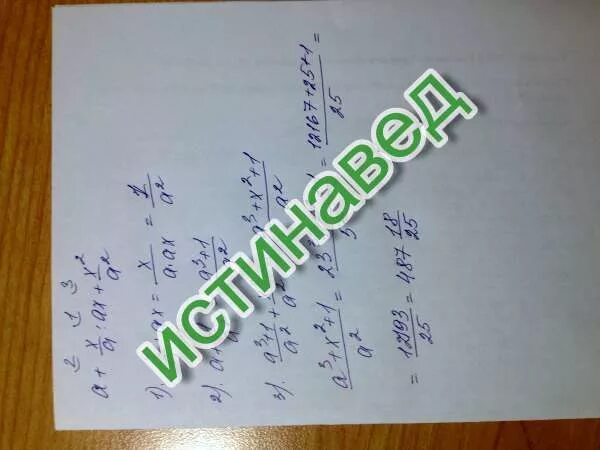 2 1 3
a + x/a : ax + x²/a²
1). : ax = x/a·ax = 1/a²
2). a + a³+1/a²
3). a³+1/a² + a³+x²+1/a²
a³+x²+1/a² = 23 = 12167+25+1/25 =
= 12193/25 = 487 18/25
истинавед